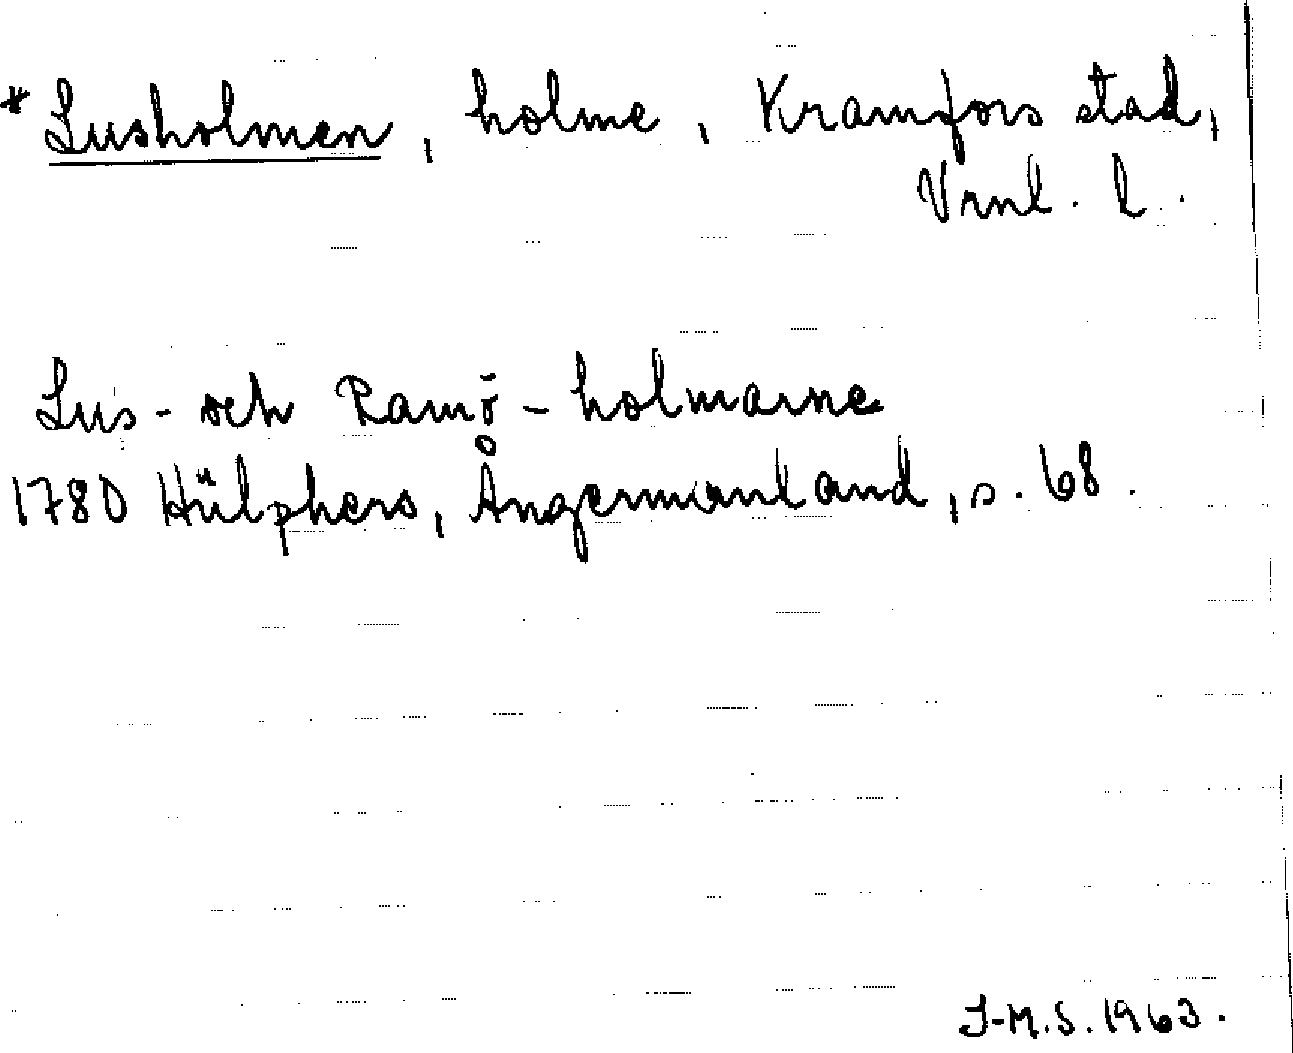 * Lusholmen, holme, Kramfors stad,
Vrnl. l.
Lus- och Ramö-holmarne
1780 Hülphers, Ångermanland, s. 68.
J-M.S. 1963.